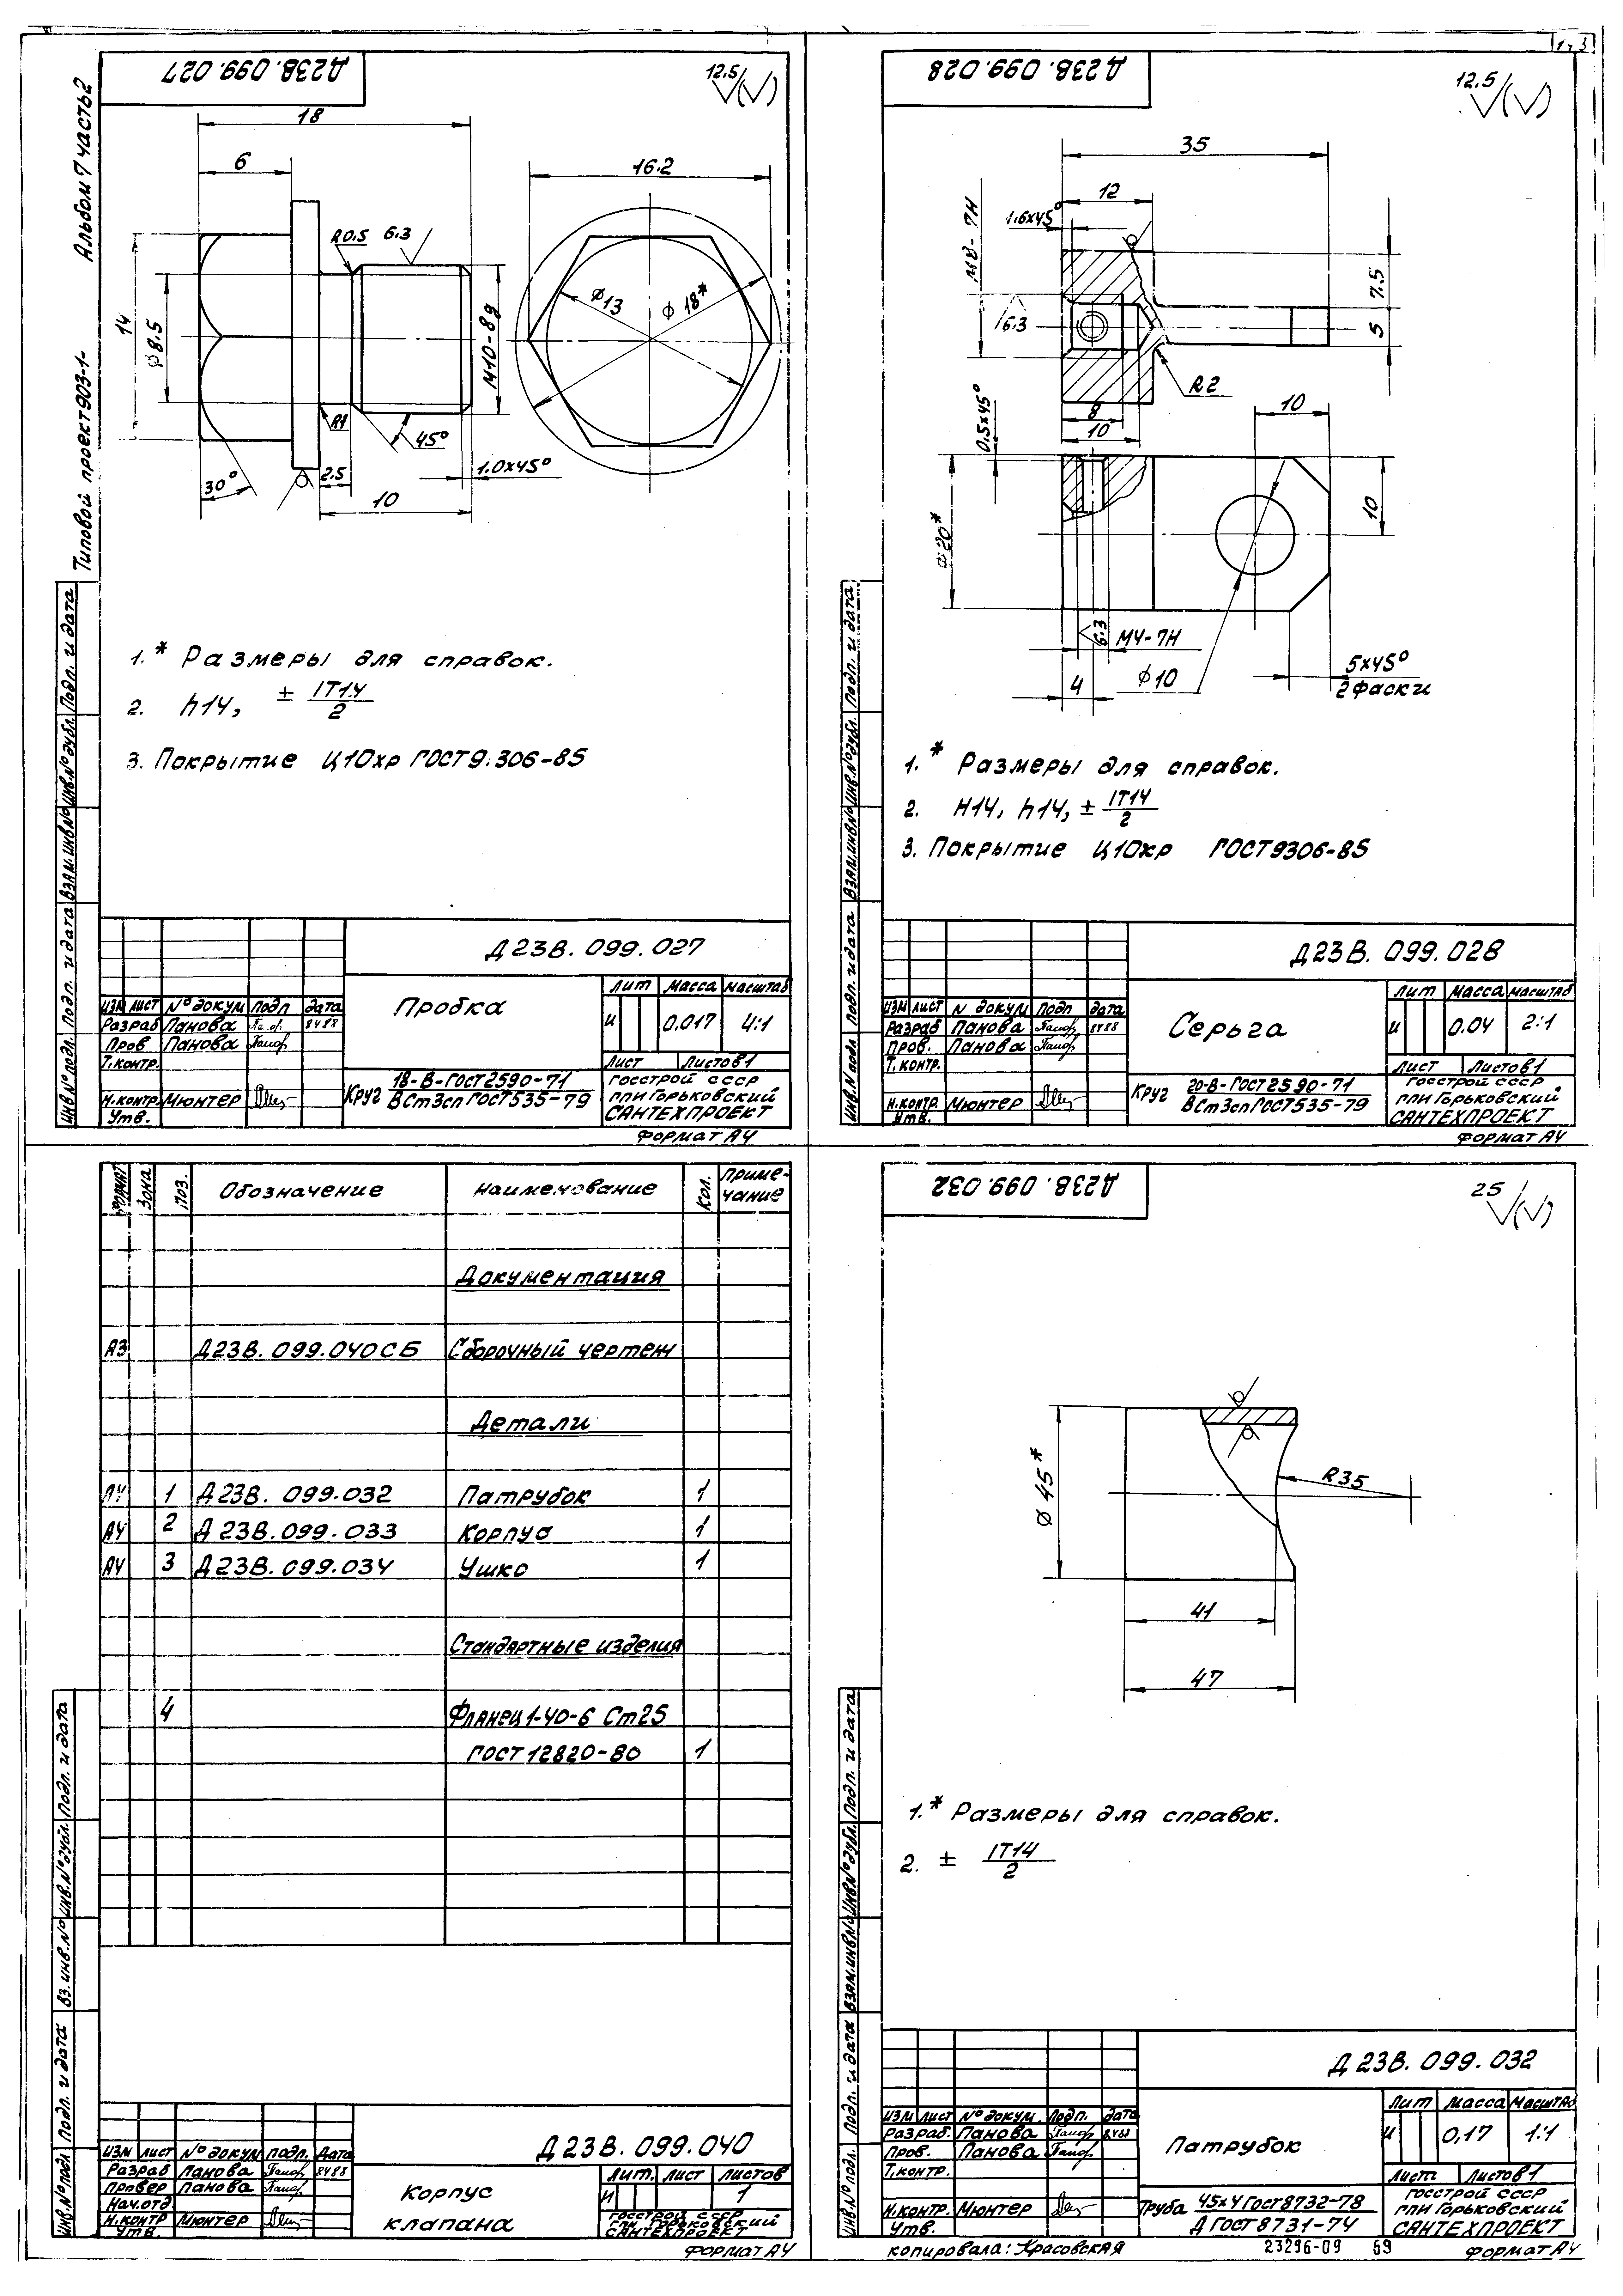 Альбом 7 часть 2
Типовой проект 903-1-
Д23В.099.027
12.5
18
6
16.2
R0.5
6.3
14
ϕ8.5
М10-8g
ϕ13
ϕ18*
R1
45°
30°
2.5
1.0x45°
10
1.* Размеры для справок.
2. h14, ± IT14
2
3. Покрытие Ц10хр ГОСТ 9.306-85
Инв.№подл. Подп. и дата Взам.инв.№ Инв.№дубл. Подп. и дата
Д23В.099.027
Изм Лист №докум Подп Дата
Разраб Панова 8488
Пров Панова
Т.контр.
Н.контр. Мюнтер
Утв.
Пробка
Лит Масса Масштаб
и 0.017 4:1
Лист Листов 1
Круг 18-В-ГОСТ2590-71
ВСт3сп ГОСТ535-79
Госстрой СССР
ГПИ Горьковский
САНТЕХПРОЕКТ
Формат А4
Д23В.099.028
12.5
35
12
1.6x45°
М8-7Н
6.3
7.5
5
R2
8
10
0.5x45°
10
ϕ20*
10
6.3
М4-7Н
ϕ10
4
5x45°
2 фаски
1.* Размеры для справок.
2. Н14, h14, ± IT14
2
3. Покрытие Ц10хр ГОСТ9306-85
Инв.№подл Подп. и дата Взам.инв.№ Инв.№дубл. Подп. и дата
Д23В.099.028
Изм Лист № докум Подп Дата
Разраб Панова 8488
Пров. Панова
Т.контр.
Н.контр. Мюнтер
Утв.
Серьга
Лит Масса Масштаб
и 0.04 2:1
Лист Листов 1
Круг 20-В-ГОСТ2590-71
ВСт3сп ГОСТ535-79
Госстрой СССР
ГПИ Горьковский
САНТЕХПРОЕКТ
Формат А4
Формат Зона Поз. Обозначение Наименование Кол. Приме-
чание
Документация
А3 Д23В.099.040СБ Сборочный чертеж
Детали
А4 1 Д23В.099.032 Патрубок 1
А4 2 Д23В.099.033 Корпус 1
А4 3 Д23В.099.034 Ушко 1
Стандартные изделия
4 Фланец 1-40-6 Ст25
ГОСТ 12820-80 1
Инв.№подл Подп. и дата Вз.инв.№ Инв.№дубл. Подп. и дата
Д23В.099.040
Изм Лист №докум Подп. Дата
Разраб Панова 8488
Провер Панова
Нач.отд.
Н.контр Мюнтер
Утв.
Корпус
клапана
Лит. Лист Листов
и 1
Госстрой СССР
ГПИ Горьковский
САНТЕХПРОЕКТ
Формат А4
Д23В.099.032
25
ϕ45*
R35
41
47
1.* Размеры для справок.
2. ± IT14
2
Инв.№подл. Подп. и дата Взам.инв.№ Инв.№дубл. Подп. и дата
Д23В.099.032
Изм Лист №докум. Подп. Дата
Разраб. Панова 8488
Пров. Панова
Т.контр.
Н.контр. Мюнтер
Утв.
Патрубок
Лит Масса Масштаб
и 0,17 1:1
Лист Листов 1
Труба 45x4 ГОСТ8732-78
Д ГОСТ8731-74
Госстрой СССР
ГПИ Горьковский
САНТЕХПРОЕКТ
Копировала: Красовская
23296-09 69
Формат А4